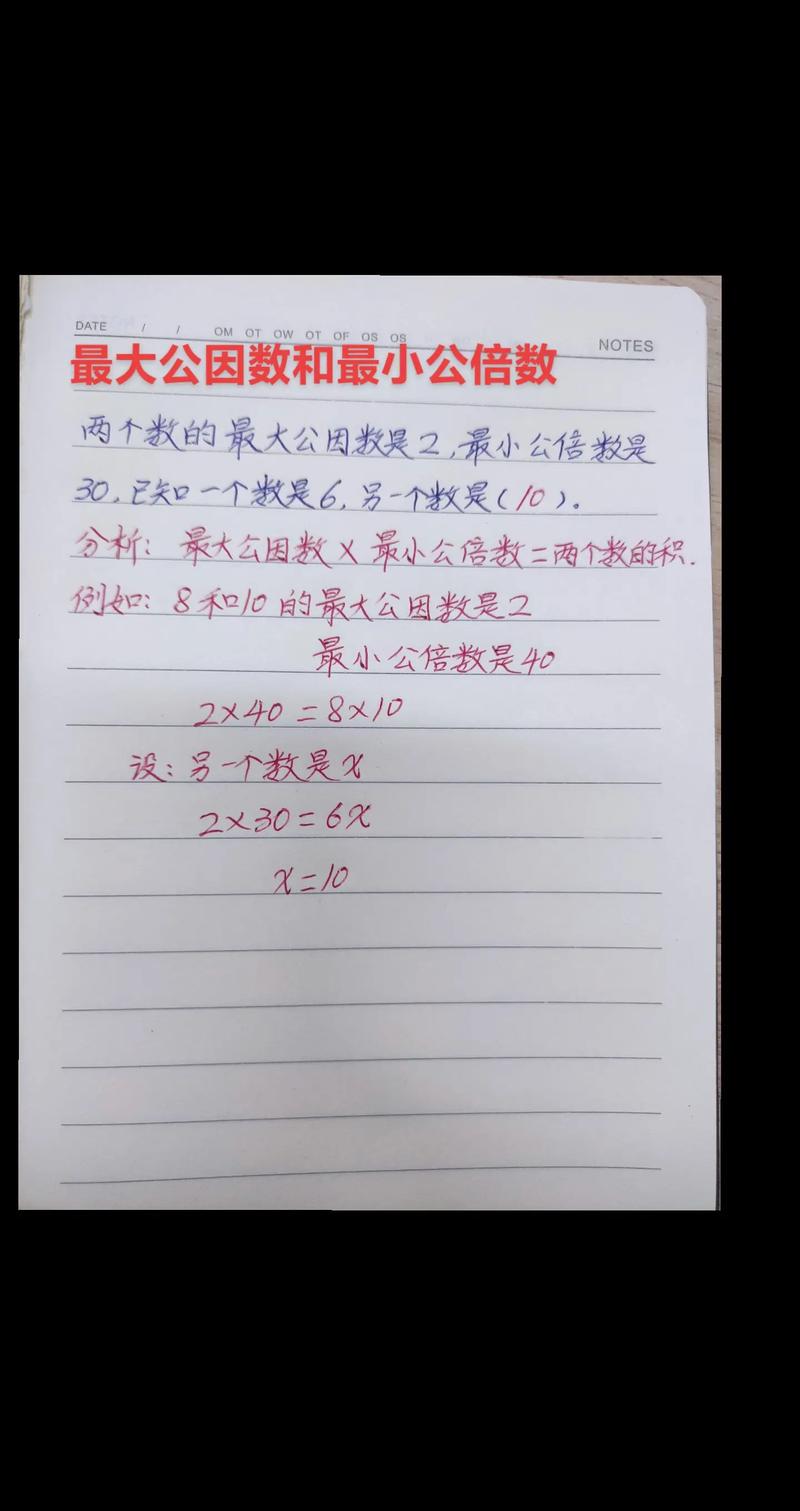 DATE / / OM OT OW OT OF OS OS
NOTES
最大公因数和最小公倍数
两个数的最大公因数是2,最小公倍数是
30,已知一个数是6,另一个数是(10)。
分析: 最大公因数×最小公倍数=两个数的积.
例如: 8和10的最大公因数是2
最小公倍数是40
2×40=8×10
设:另一个数是x
2×30=6x
x=10